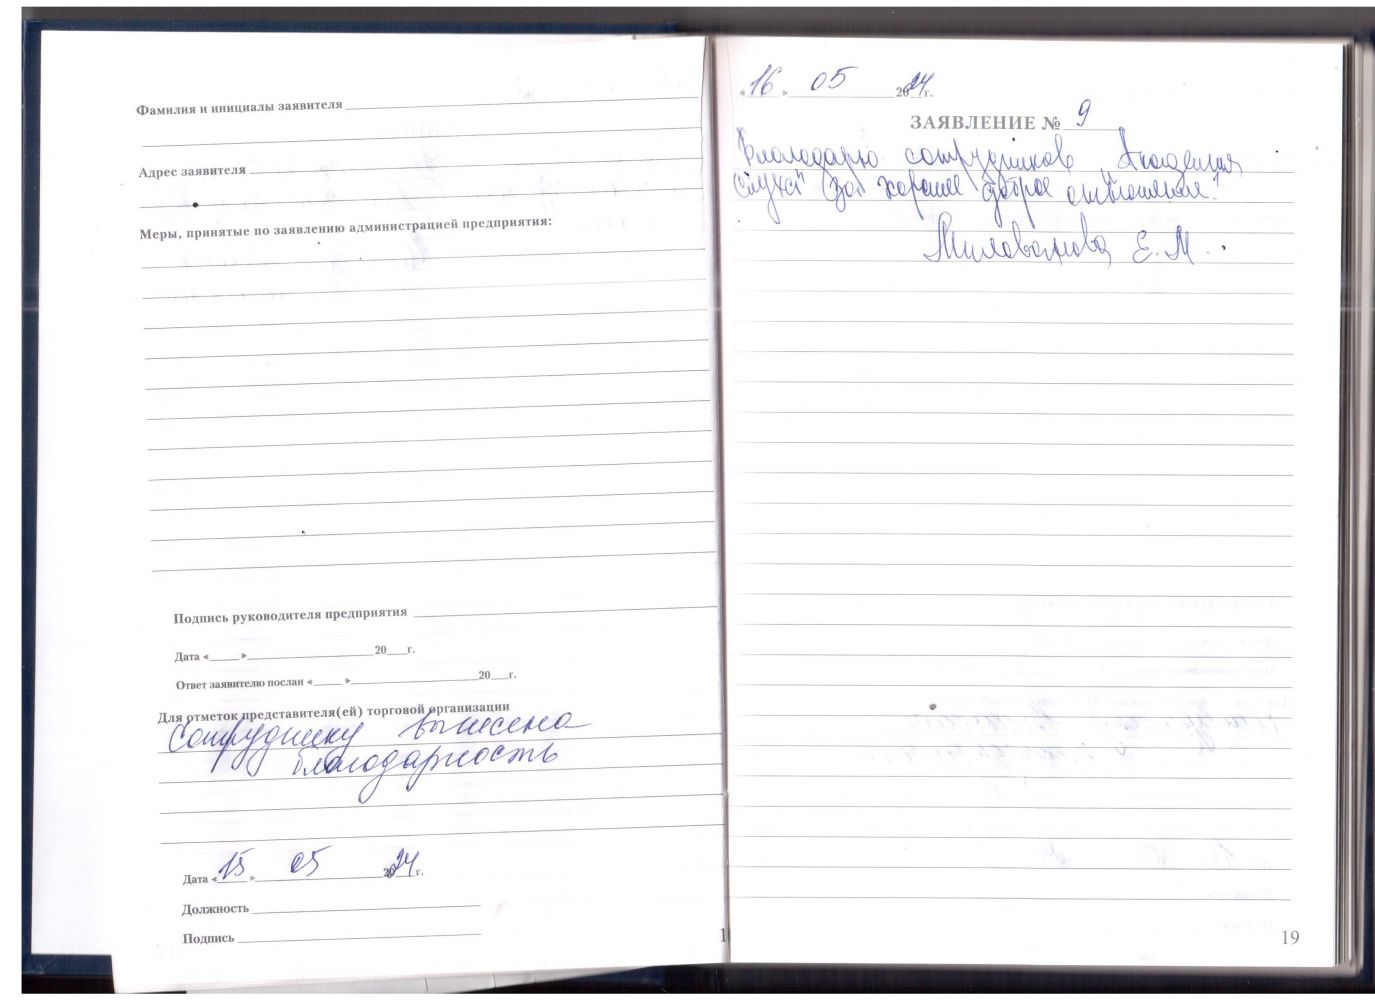 Фамилия и инициалы заявителя
Адрес заявителя
Меры, принятые по заявлению администрацией предприятия:
Подпись руководителя предприятия
Дата « » 20 г.
Ответ заявителю послан « » 20 г.
Для отметок представителя(ей) торговой организации
Сотруднику вынесена
благодарность
Дата « 15 » 05 2024 г.
Должность
Подпись
« 16 » 05 2024 г.
ЗАЯВЛЕНИЕ № 9
Благодарю сотрудников "Академия
слуха" за хорошее доброе отношение!
Милованова Е.М.
19